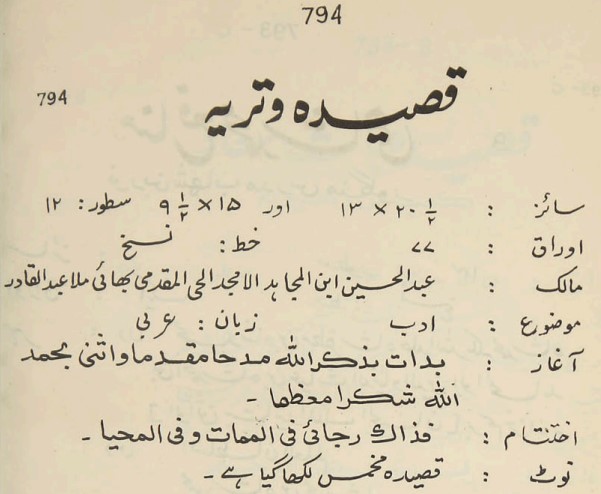 794
قصیده وتریه
794
سائز : ۲۰ ½ × ۱۳ اور ۱۵ × ۹ ½ سطور: ۱۲
اوراق : ۷۷ خط: نسخ
مالک : عبدالحسین ابن المجاہد الامجد الحی المقدمی بھائی ملا عبدالقادر
موضوع : ادب زبان: عربی
آغاز : بدات بذکراللہ مدحا مقدما واثنی بحمد
اللہ شکرا معظما ـ
اختتام : فذاک رجائی فی الممات و فی المحیا ـ
نوٹ : قصیدہ مخمس لکھا گیا ہے ـ